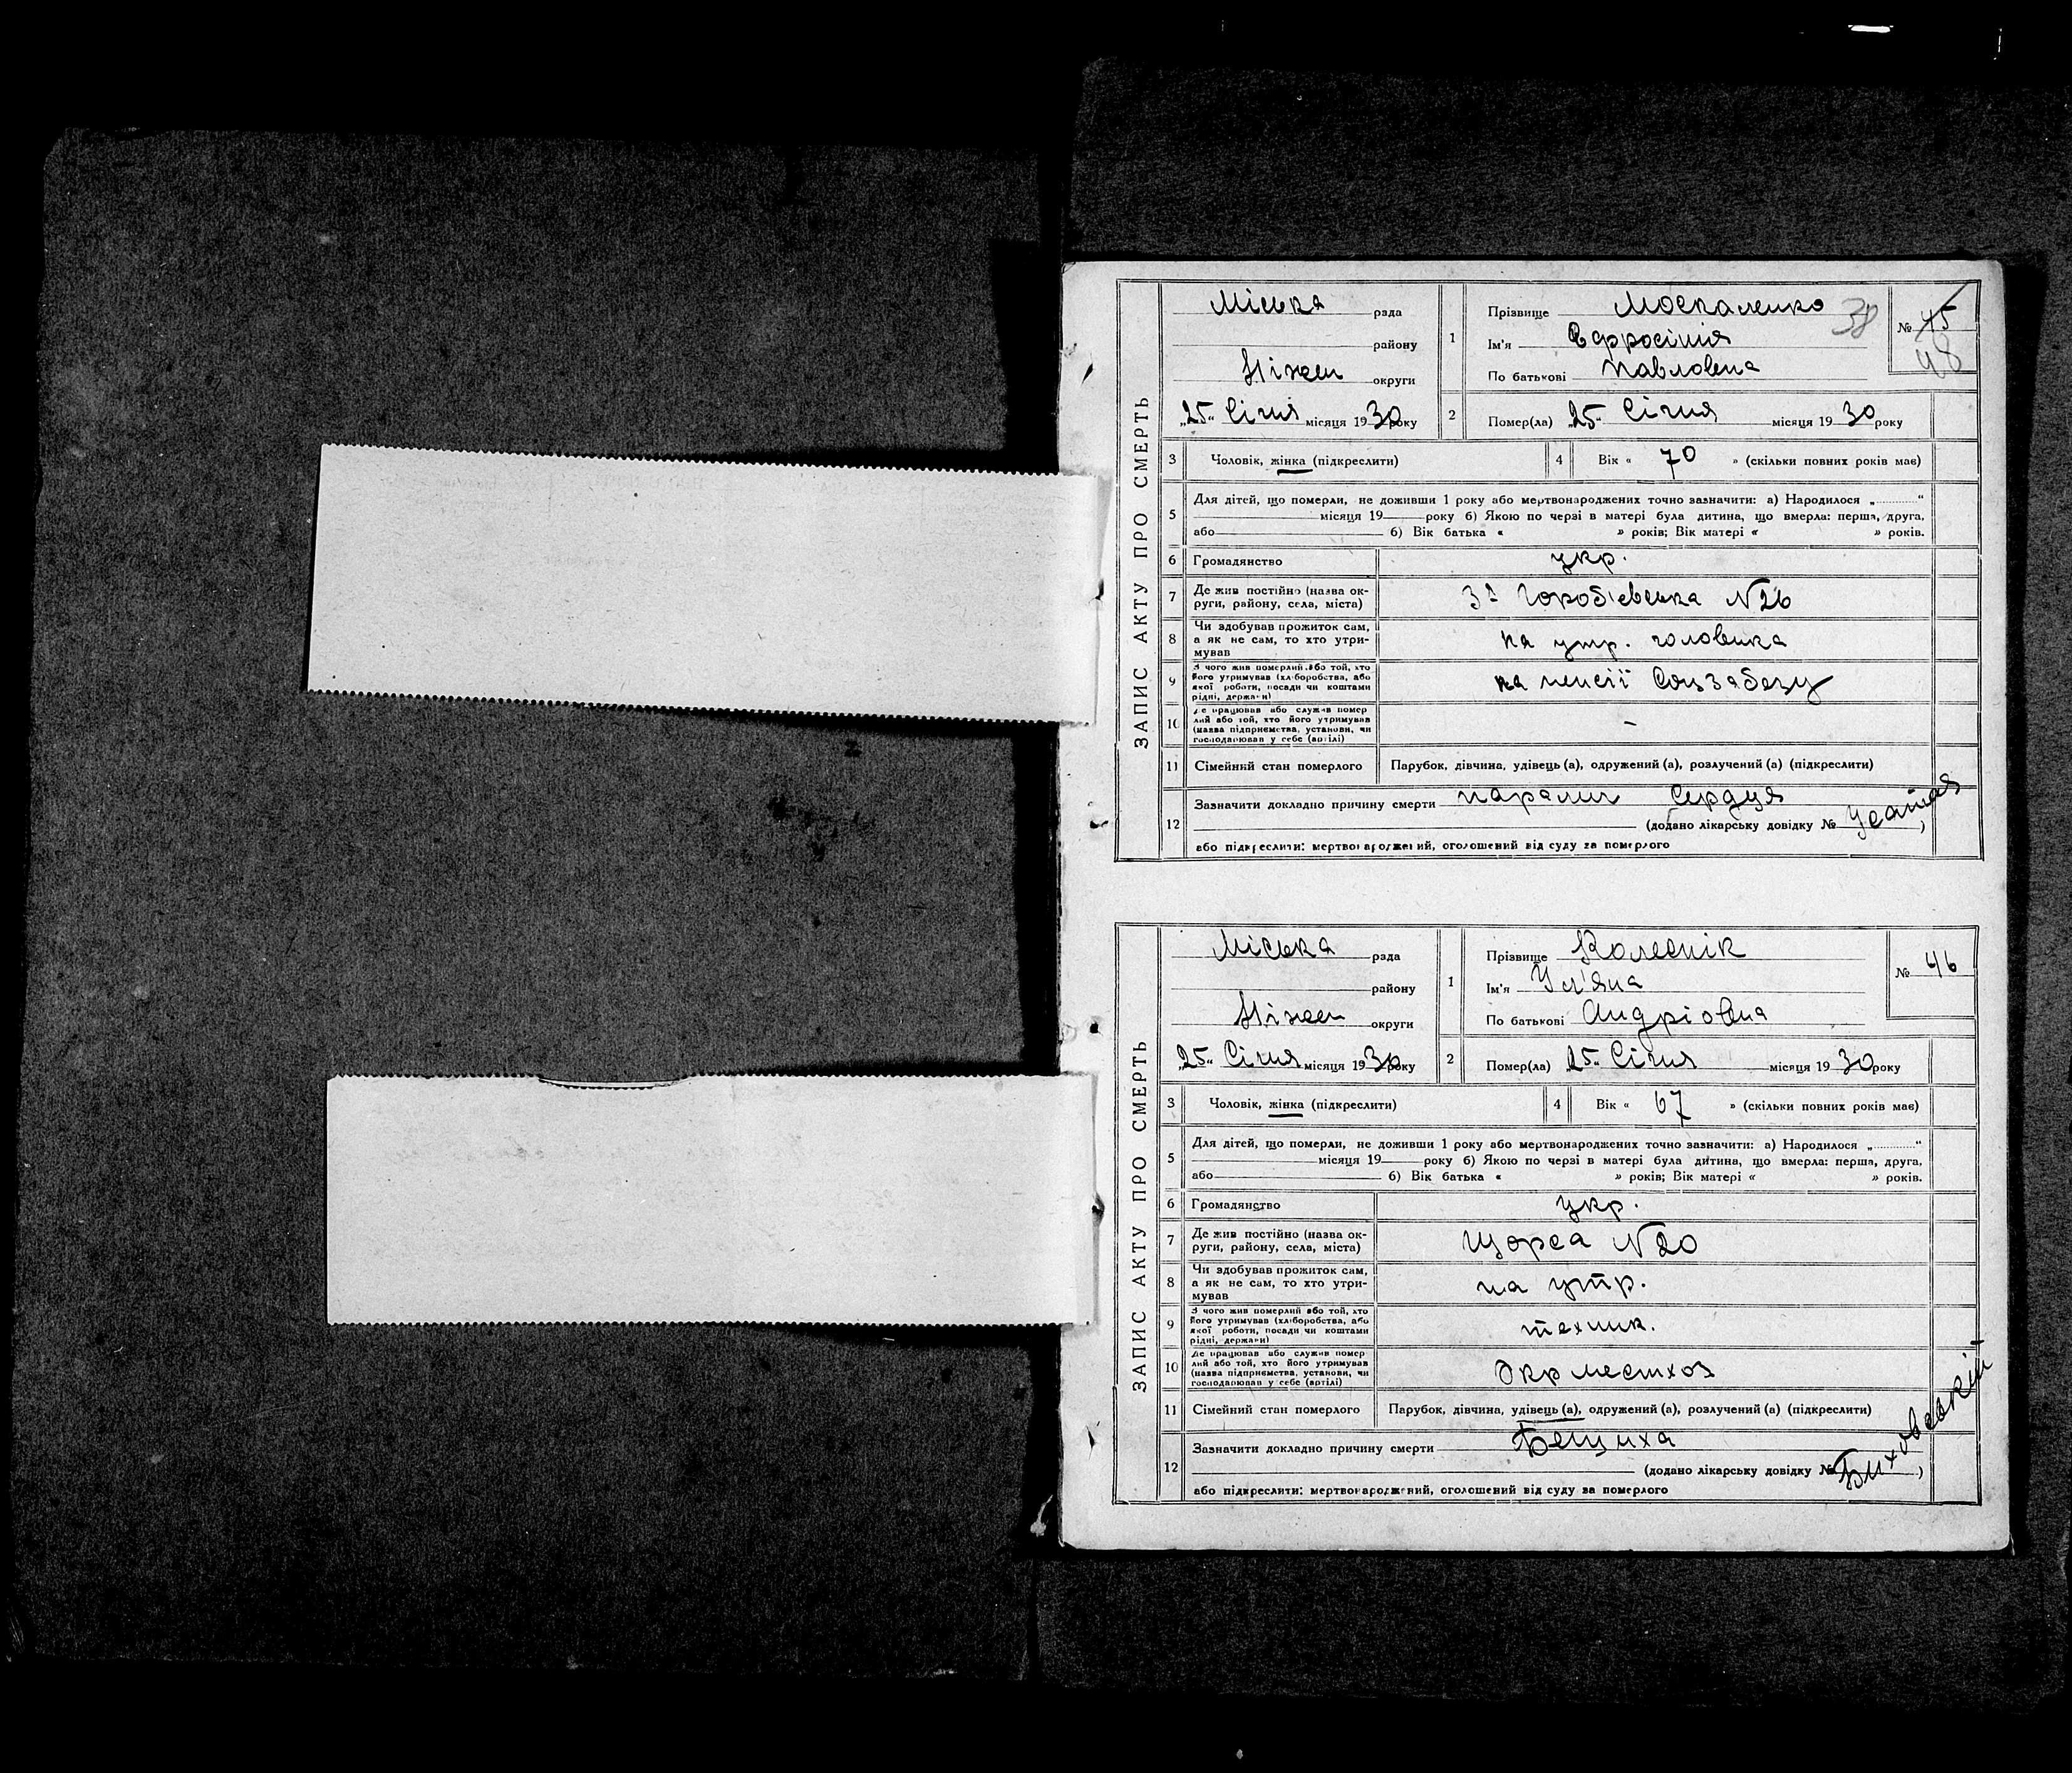 ЗАПИС АКТУ ПРО СМЕРТЬ
Міська рада
району
Ніжен округи
„25“ Січня місяця 1930 року
1 Прізвище Москаленко
Ім'я Єфросінія
По батькові Павловна
38
№ 45
48
2 Помер(ла) „25“ Січня місяця 1930 року
3 Чоловік, жінка (підкреслити)
4 Вік « 70 » (скільки повних років має)
5 Для дітей, що померли, не доживши 1 року або мертвонароджених точно зазначити: а) Народилося „ “
місяця 19 року б) Якою по черзі в матері була дитина, що вмерла: перша, друга,
або б) Вік батька « » років; Вік матері « » років.
6 Громадянство укр.
7 Де жив постійно (назва ок-
руги, району, села, міста)
Горобієвська N26
8 Чи здобував прожиток сам,
а як не сам, то хто утри-
мував
на утр. чоловика
9 З чого жив померлий або той, хто
його утримував (хліборобства, або
якої роботи, посади чи коштами
рідні, держави)
на пенсії Соцзабезу
10 Де працював або служив помер
лий або той, хто його утримував
(назва підприємства, установи, чи
господарював у себе (артілі)
-
11 Сімейний стан померлого Парубок, дівчина, удівець (а), одружений (а), розлучений (а) (підкреслити)
12 Зазначити докладно причину смерти параліч сердця
(додано лікарську довідку № )
або підкреслити: мертвонароджений, оголошений від суду за померлого
ЗАПИС АКТУ ПРО СМЕРТЬ
Міська рада
району
Ніжен округи
„25“ Січня місяця 1930 року
1 Прізвище Колеснік
Ім'я Ул'яна
По батькові Андріовна
№ 46
2 Помер(ла) 25“ Січня місяця 1930 року
3 Чоловік, жінка (підкреслити)
4 Вік « 67 » (скільки повних років має)
5 Для дітей, що померли, не доживши 1 року або мертвонароджених точно зазначити: а) Народилося „ “
місяця 19 року б) Якою по черзі в матері була дитина, що вмерла: перша, друга,
або б) Вік батька « » років; Вік матері « » років.
6 Громадянство укр.
7 Де жив постійно (назва ок-
руги, району, села, міста)
Щорса N20
8 Чи здобував прожиток сам,
а як не сам, то хто утри-
мував
на утр.
9 З чого жив померлий або той, хто
його утримував (хліборобства, або
якої роботи, посади чи коштами
рідні, держави)
техник.
10 Де працював або служив помер
лий або той, хто його утримував
(назва підприємства, установи, чи
господарював у себе (артілі)
Окрместхоз
11 Сімейний стан померлого Парубок, дівчина, удівець (а), одружений (а), розлучений (а) (підкреслити)
12 Зазначити докладно причину смерти Бешиха
(додано лікарську довідку № Биховський )
або підкреслити: мертвонароджений, оголошений від суду за померлого